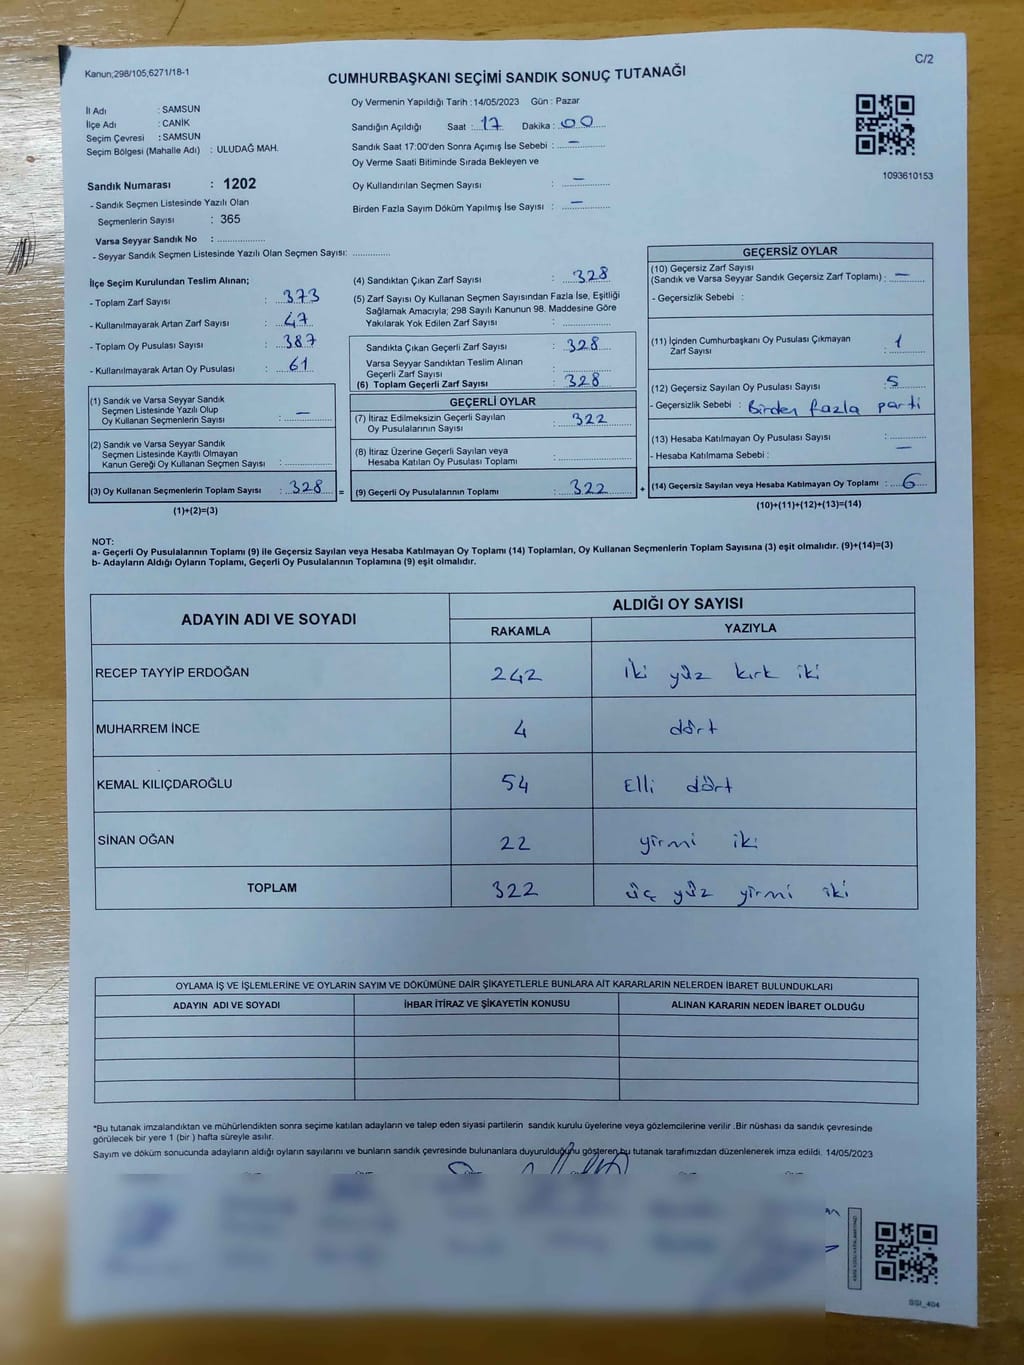 Kanun;298/105;6271/18-1
C/2
CUMHURBAŞKANI SEÇİMİ SANDIK SONUÇ TUTANAĞI
İl Adı : SAMSUN
İlçe Adı : CANİK
Seçim Çevresi : SAMSUN
Seçim Bölgesi (Mahalle Adı) : ULUDAĞ MAH.
Sandık Numarası : 1202
- Sandık Seçmen Listesinde Yazılı Olan
Seçmenlerin Sayısı : 365
Varsa Seyyar Sandık No : ..................
- Seyyar Sandık Seçmen Listesinde Yazılı Olan Seçmen Sayısı: ..............
Oy Vermenin Yapıldığı Tarih : 14/05/2023 Gün : Pazar
Sandığın Açıldığı Saat : 17 Dakika : 00
Sandık Saat 17:00'den Sonra Açımış İse Sebebi : —
Oy Verme Saati Bitiminde Sırada Bekleyen ve
Oy Kullandırılan Seçmen Sayısı : —
Birden Fazla Sayım Döküm Yapılmış İse Sayısı : —
1093610153
İlçe Seçim Kurulundan Teslim Alınan;
- Toplam Zarf Sayısı : 373
- Kullanılmayarak Artan Zarf Sayısı : 47
- Toplam Oy Pusulası Sayısı : 387
- Kullanılmayarak Artan Oy Pusulası : 61
(1) Sandık ve Varsa Seyyar Sandık
Seçmen Listesinde Yazılı Olup
Oy Kullanan Seçmenlerin Sayısı : —
(2) Sandık ve Varsa Seyyar Sandık
Seçmen Listesinde Kayıtlı Olmayan
Kanun Gereği Oy Kullanan Seçmen Sayısı : ..............
(3) Oy Kullanan Seçmenlerin Toplam Sayısı : 328 =
(1)+(2)=(3)
(4) Sandıktan Çıkan Zarf Sayısı : 328
(5) Zarf Sayısı Oy Kullanan Seçmen Sayısından Fazla İse, Eşitliği
Sağlamak Amacıyla; 298 Sayılı Kanunun 98. Maddesine Göre
Yakılarak Yok Edilen Zarf Sayısı : ..............
Sandıkta Çıkan Geçerli Zarf Sayısı : 328
Varsa Seyyar Sandıktan Teslim Alınan
Geçerli Zarf Sayısı : ..............
(6) Toplam Geçerli Zarf Sayısı : 328
GEÇERLİ OYLAR
(7) İtiraz Edilmeksizin Geçerli Sayılan
Oy Pusulalarının Sayısı : 322
(8) İtiraz Üzerine Geçerli Sayılan veya
Hesaba Katılan Oy Pusulası Toplamı : ..............
(9) Geçerli Oy Pusulalarının Toplamı : 322 +
GEÇERSİZ OYLAR
(10) Geçersiz Zarf Sayısı
(Sandık ve Varsa Seyyar Sandık Geçersiz Zarf Toplamı) : —
- Geçersizlik Sebebi :
(11) İçinden Cumhurbaşkanı Oy Pusulası Çıkmayan
Zarf Sayısı : 1
(12) Geçersiz Sayılan Oy Pusulası Sayısı : 5
- Geçersizlik Sebebi : Birden fazla parti
(13) Hesaba Katılmayan Oy Pusulası Sayısı : ..............
- Hesaba Katılmama Sebebi : —
(14) Geçersiz Sayılan veya Hesaba Katılmayan Oy Toplamı : 6
(10)+(11)+(12)+(13)=(14)
NOT:
a- Geçerli Oy Pusulalarının Toplamı (9) ile Geçersiz Sayılan veya Hesaba Katılmayan Oy Toplamı (14) Toplamları, Oy Kullanan Seçmenlerin Toplam Sayısına (3) eşit olmalıdır. (9)+(14)=(3)
b- Adayların Aldığı Oyların Toplamı, Geçerli Oy Pusulalarının Toplamına (9) eşit olmalıdır.
ADAYIN ADI VE SOYADI
ALDIĞI OY SAYISI
RAKAMLA YAZIYLA
RECEP TAYYİP ERDOĞAN 242 iki yüz kırk iki
MUHARREM İNCE 4 dört
KEMAL KILIÇDAROĞLU 54 Elli dört
SİNAN OĞAN 22 yirmi iki
TOPLAM 322 üç yüz yirmi iki
OYLAMA İŞ VE İŞLEMLERİNE VE OYLARIN SAYIM VE DÖKÜMÜNE DAİR ŞİKAYETLERLE BUNLARA AİT KARARLARIN NELERDEN İBARET BULUNDUKLARI
ADAYIN ADI VE SOYADI İHBAR İTİRAZ VE ŞİKAYETİN KONUSU ALINAN KARARIN NEDEN İBARET OLDUĞU
*Bu tutanak imzalandıktan ve mühürlendikten sonra seçime katılan adayların ve talep eden siyasi partilerin sandık kurulu üyelerine veya gözlemcilerine verilir .Bir nüshası da sandık çevresinde
görülecek bir yere 1 (bir ) hafta süreyle asılır.
Sayım ve döküm sonucunda adayların aldığı oyların sayılarını ve bunların sandık çevresinde bulunanlara duyurulduğunu gösteren bu tutanak tarafımızdan düzenlenerek imza edildi. 14/05/2023
SSI_404